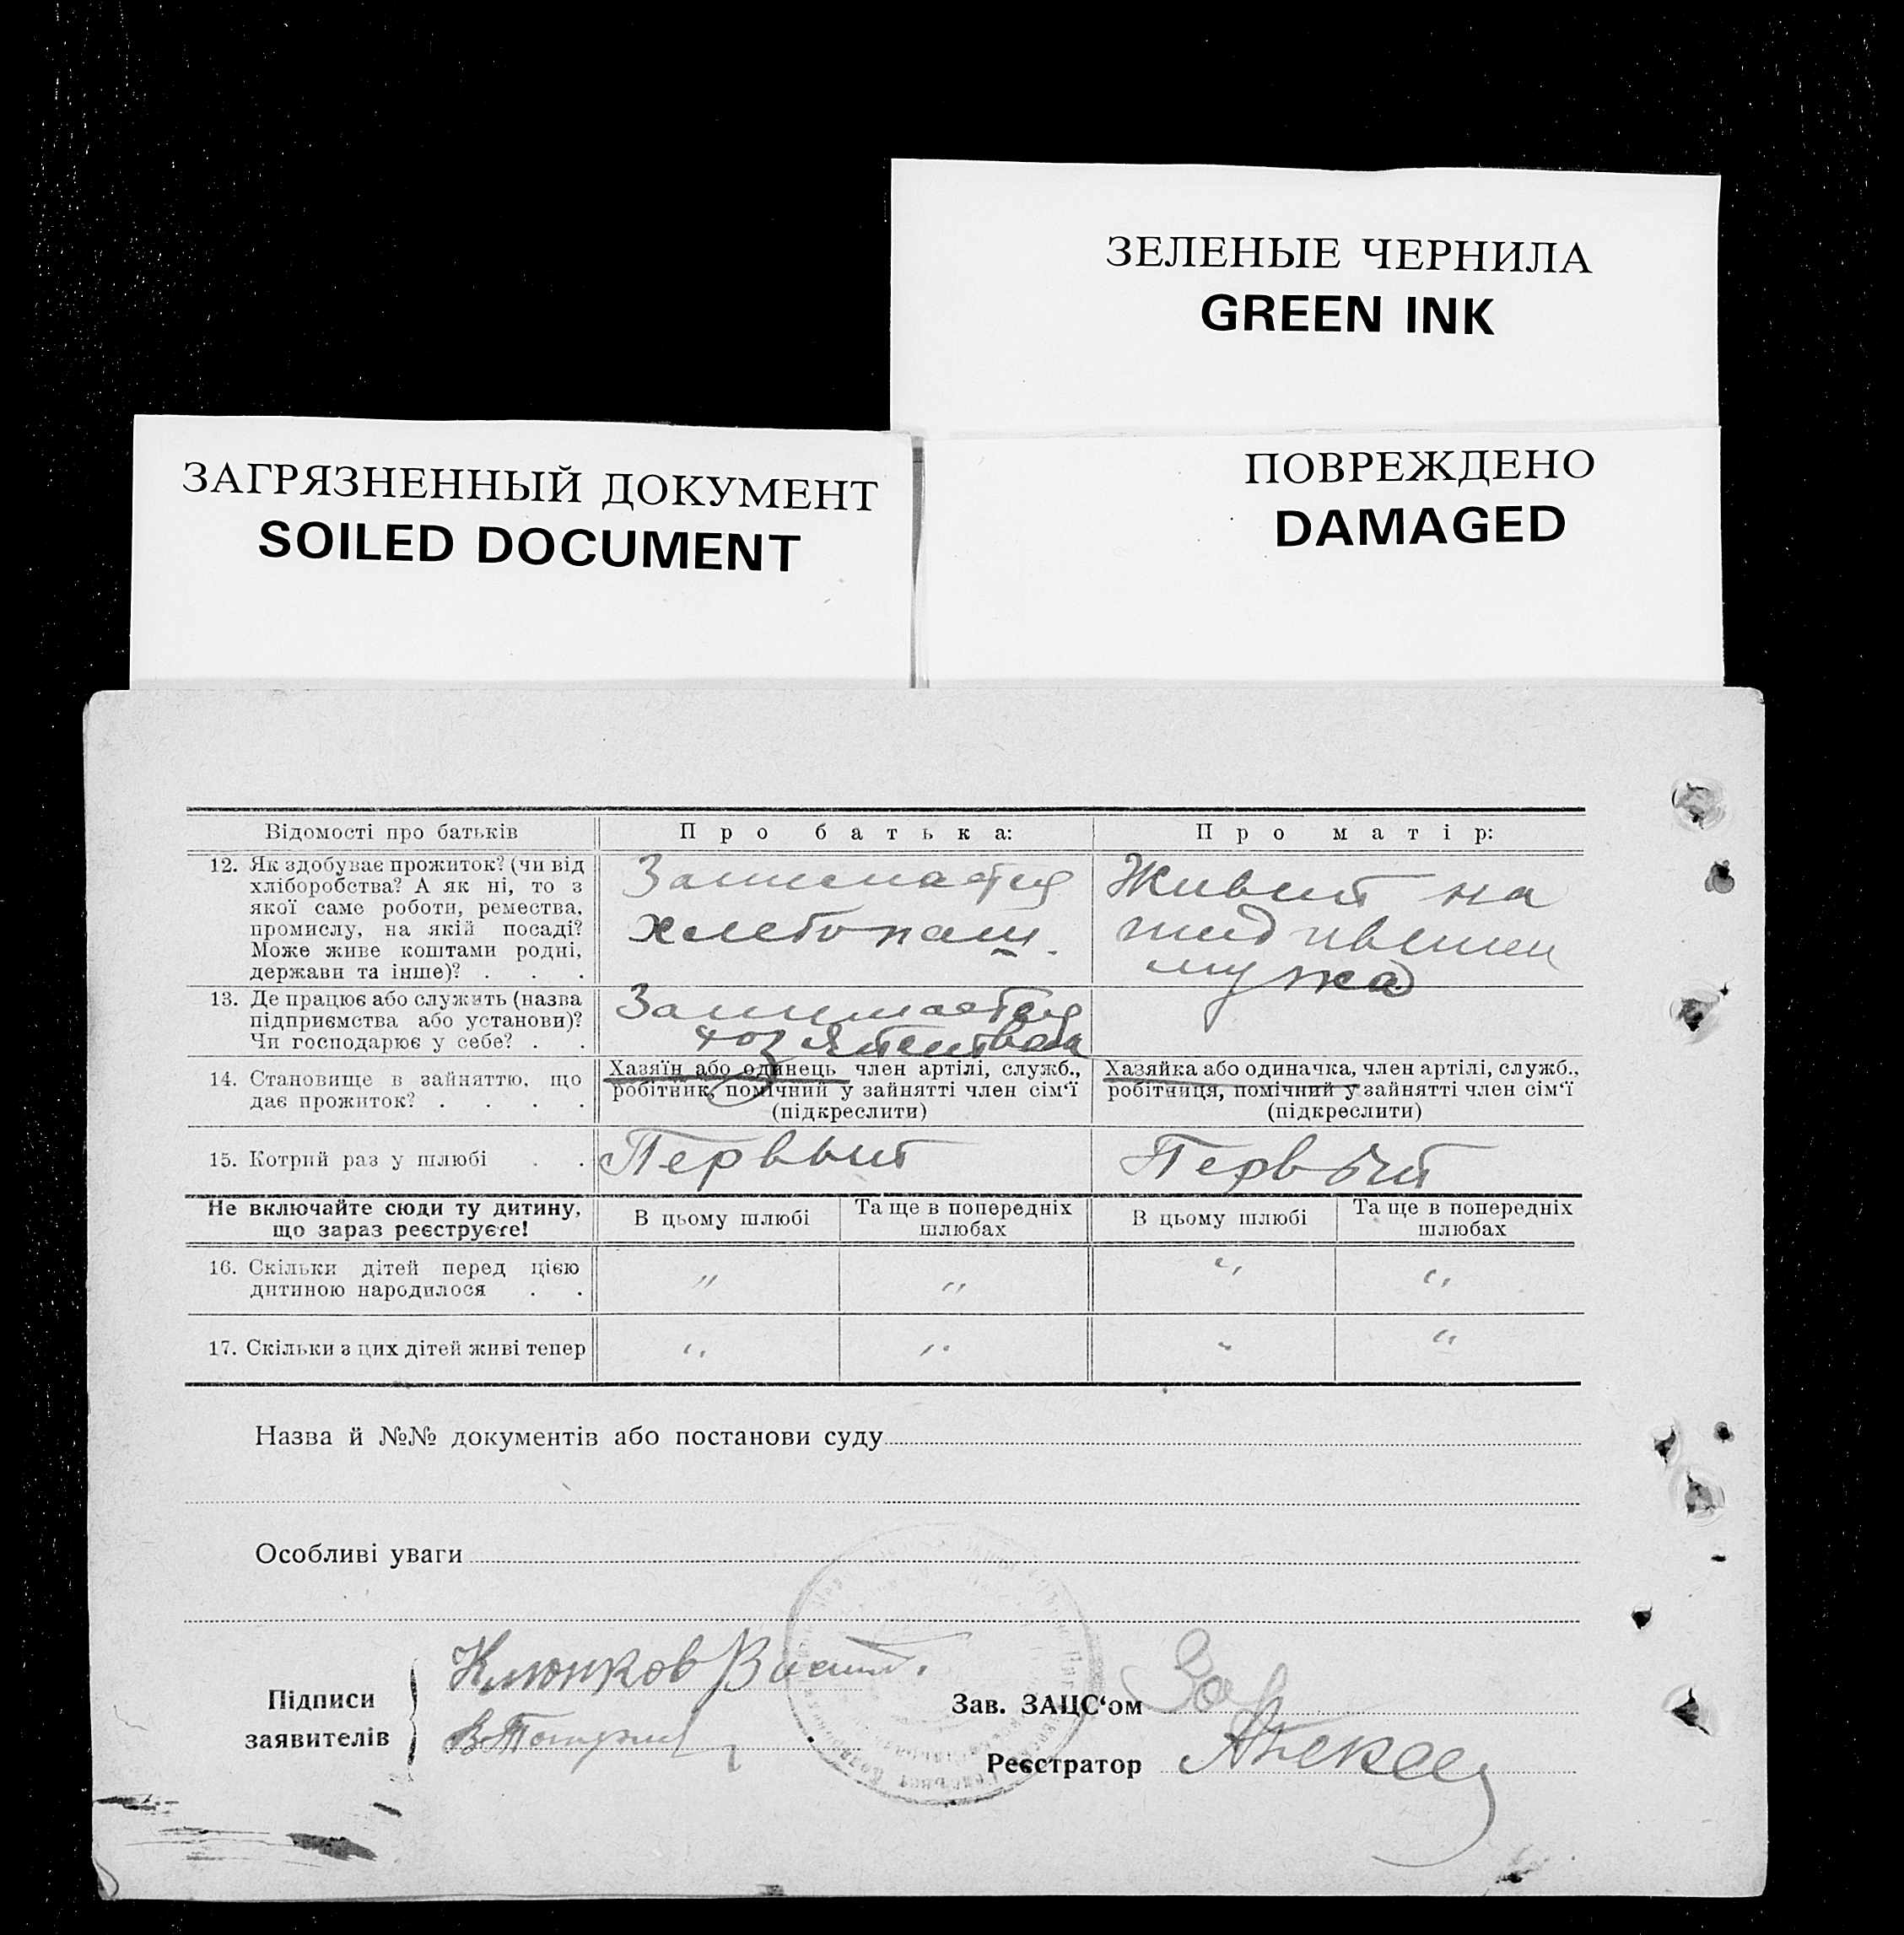 ЗЕЛЕНЫЕ ЧЕРНИЛА
GREEN INK
ЗАГРЯЗНЕННЫЙ ДОКУМЕНТ
SOILED DOCUMENT
ПОВРЕЖДЕНО
DAMAGED
Відомості про батьків
Про батька:
Про матір:
12. Як здобуває прожиток? (чи від
хліборобства? А як ні, то з
якої саме роботи, ремества,
промислу, на якій посаді?
Може живе коштами родні,
держави та інше)? . . .
Занимается
хлебопаш.
Живит на
мужа
13. Де працює або служить (назва
підприємства або установи)?
Чи господарює у себе? . .
Занимается
14. Становище в зайняттю, що
дає прожиток? . . . .
Хазяїн або одинець член артілі, служб.,
робітник, помічний у зайнятті член сім‘ї
(підкреслити)
Хазяйка або одиначка, член артілі, служб.,
робітниця, помічний у зайнятті член сім‘ї
(підкреслити)
15. Котрий раз у шлюбі . .
Первый
Первый
Не включайте сюди ту дитину,
що зараз реєструєте!
В цьому шлюбі
Та ще в попередніх
шлюбах
В цьому шлюбі
Та ще в попередніх
шлюбах
16. Скільки дітей перед цією
дитиною народилося . .
" " " "
17. Скільки з цих дітей живі тепер
" " " "
Назва й №№ документів або постанови суду
Особливі уваги
Підписи
заявителів
Клюнков Васил.
Зав. ЗАЦС‘ом
Реєстратор
Алексее